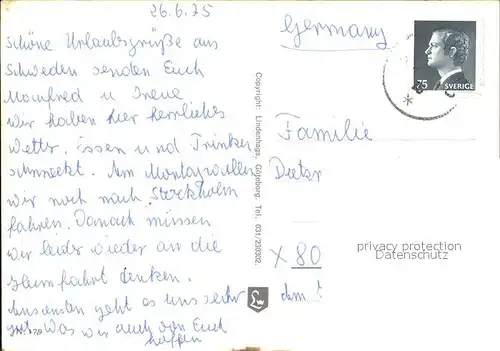 26.6.75
Schöne Urlaubsgrüße aus
Schweden senden Euch
Manfred u Irene
Wir haben hier herrliches
Wetter. Essen und Trinken
schmeckt. Am Montag wollen
wir noch nach Stockholm
fahren. Danach müssen
wir leider wieder an die
Heimfahrt denken.
Ansonsten geht es uns sehr
gut. Was wir auch von Euch
hoffen
Copyright: Lindenhags, Göteborg. Tel. 031/230302.
Germany
75 SVERIGE
Familie
Dieter
X 80
privacy protection
Datenschutz